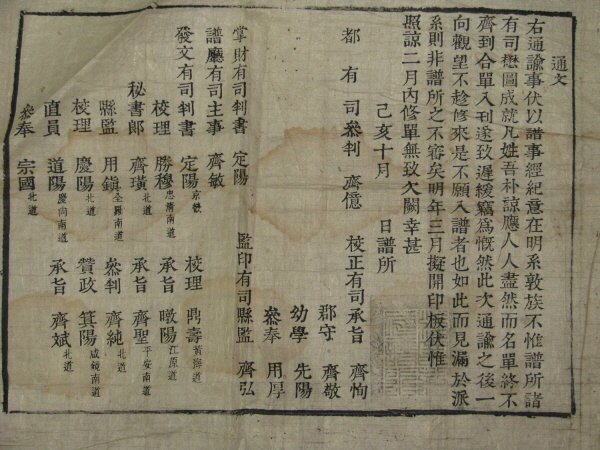 通文
右通諭事伏以譜事經紀意在明系敦族不惟譜所諸
有司懋圖成就凡姓吾朴諒應人人盡然而名單終不
齊到合單入刊遂致遲緩竊爲慨然此次通諭之後一
向觀望不趁修來是不願入譜者也如此而見漏於派
系則非譜所之不審矣明年三月擬開印板伏惟
照諒二月內修單無致欠闕幸甚
己亥十月 日譜所
都有司叅判 齊億 校正有司承旨 齊恂
郡守 齊敬
幼學 先陽
叅奉 用厚
監印有司縣監 齊弘
掌財有司判書 定陽
譜廳有司主事 齊敏
發文有司判書 定陽 京畿 校理 鼎壽 黃海道
校理 勝穆 忠清南道 承旨 暾陽 江原道
秘書郎 齊璜 北道 承旨 齊聖 平安南道
縣監 用鎭 全羅南道 叅判 齊純 北道
校理 慶陽 北道 贊政 箕陽 咸鏡南道
直員 道陽 慶尙南道 承旨 齊斌 北道
叅奉 宗國 北道